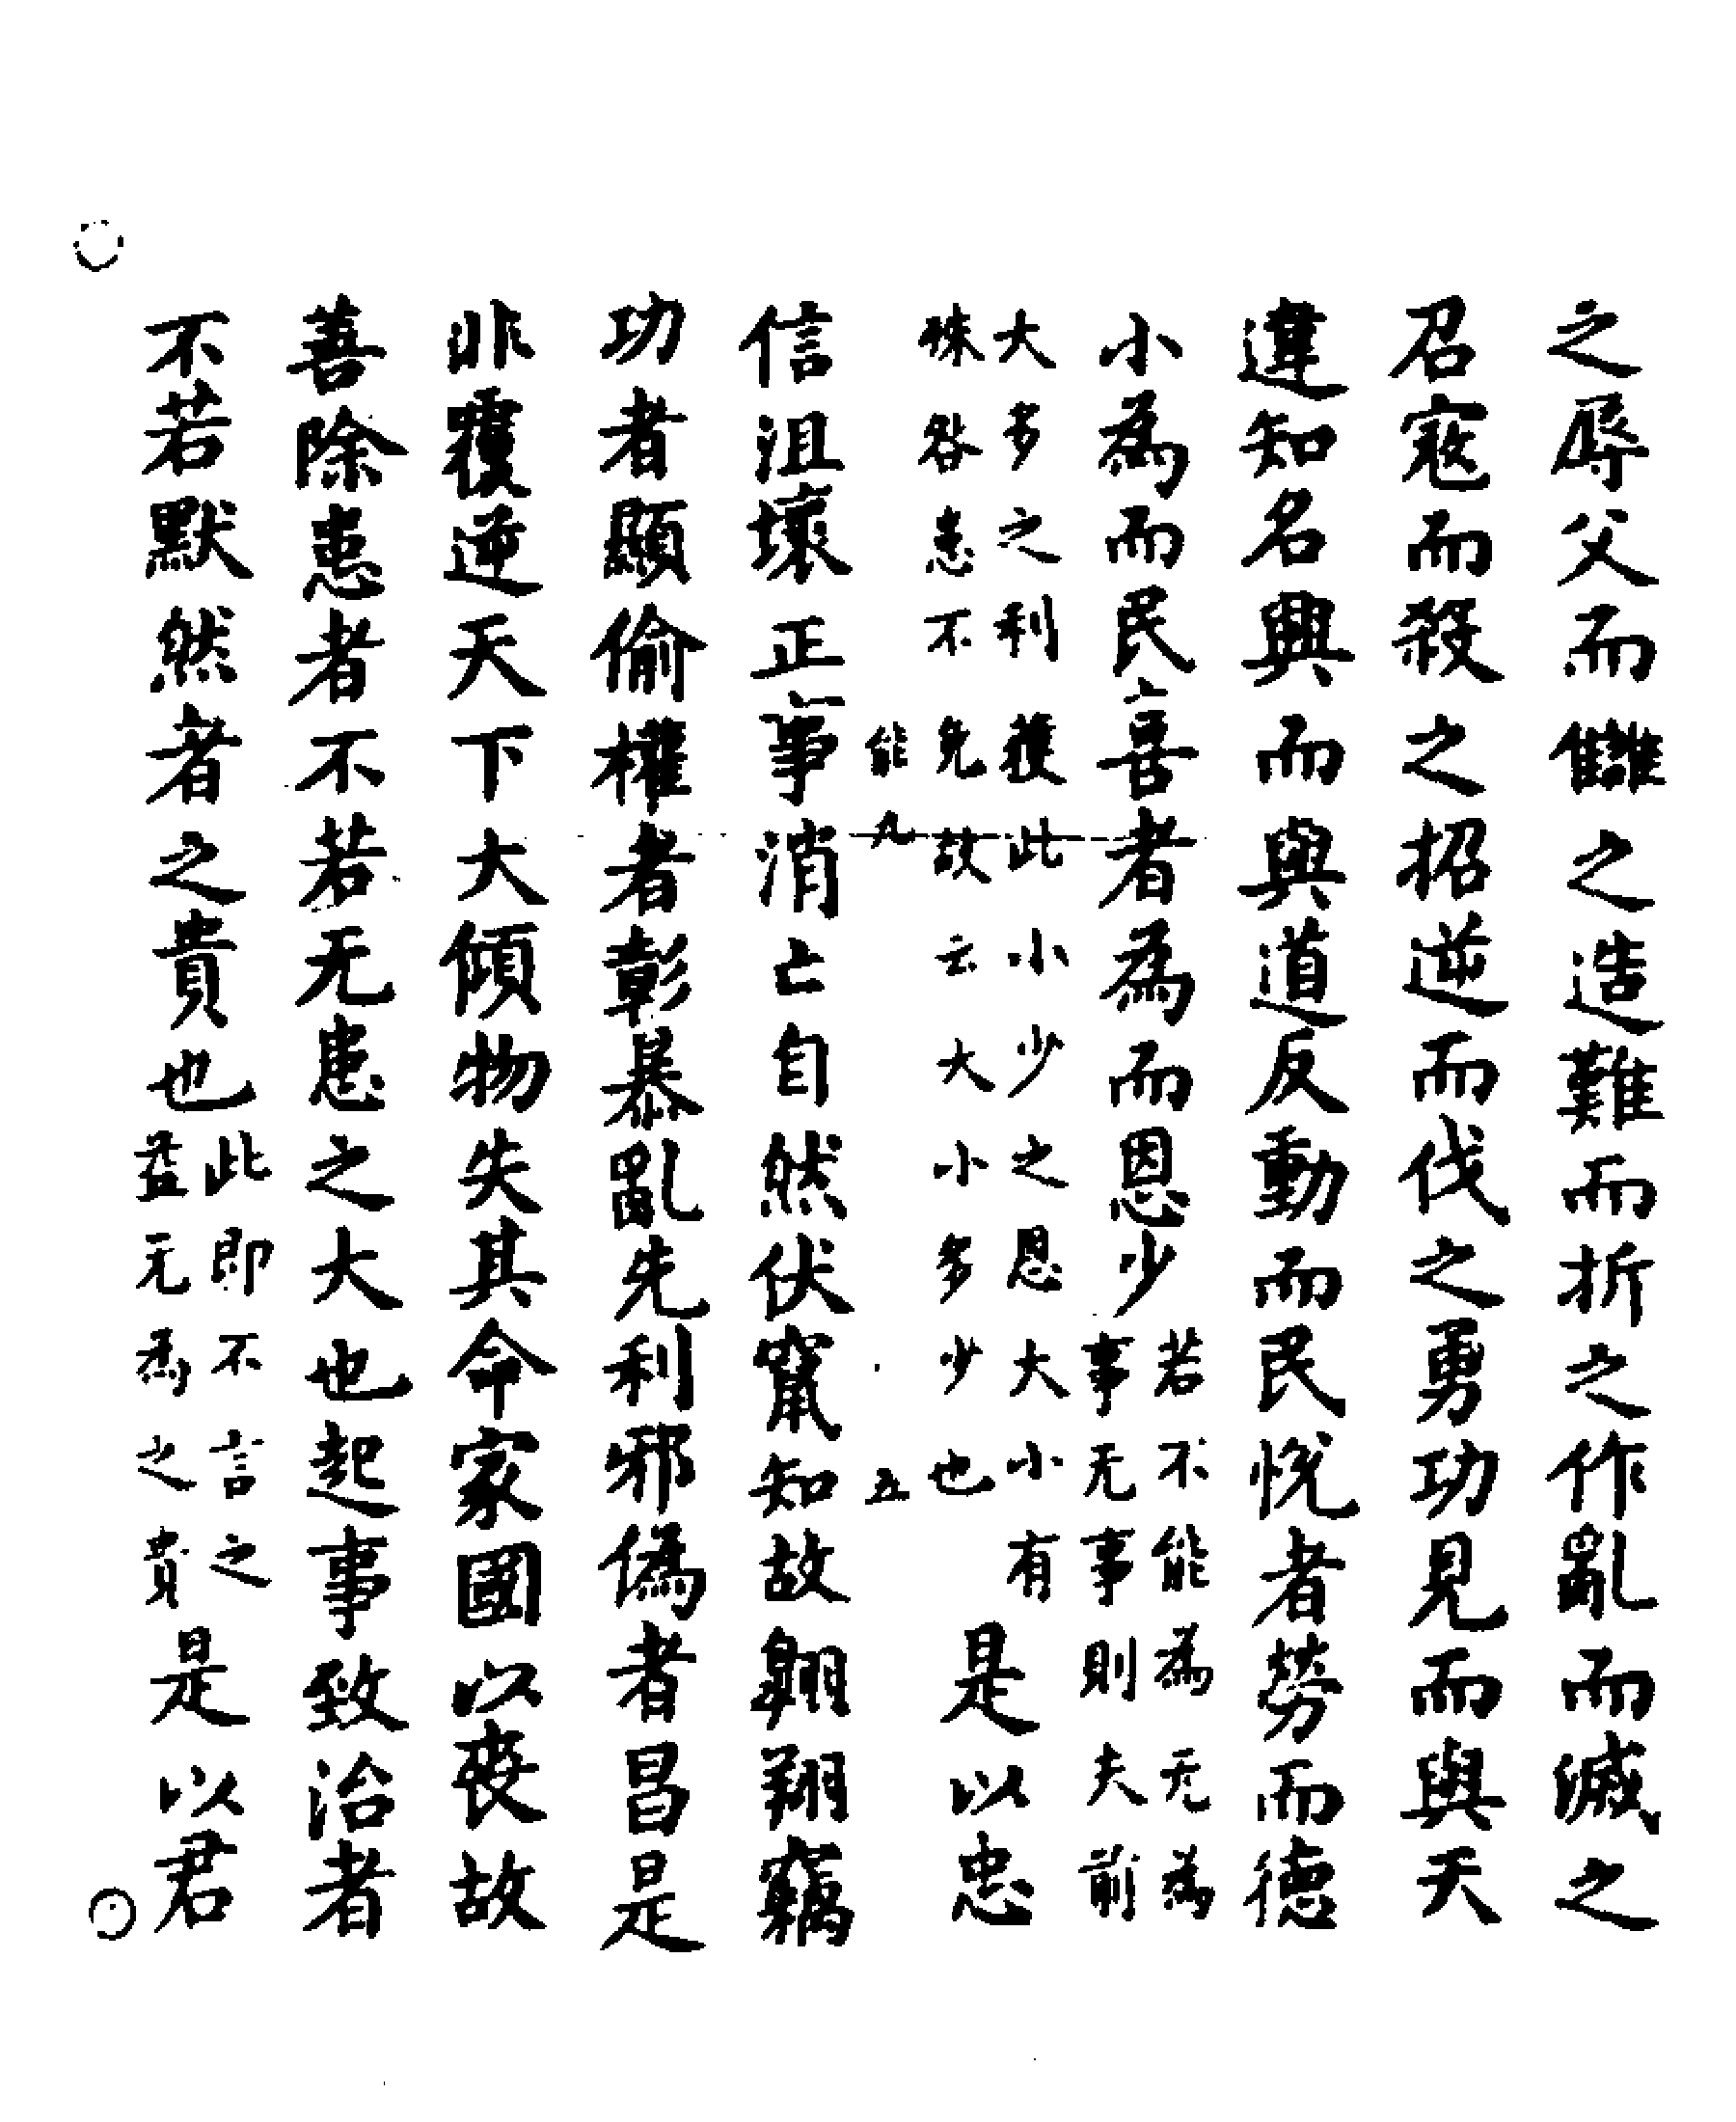 之辱父而讎之造難而折之作亂而滅之
召寇而殺之招逆而伐之勇功見而與天
違知名興而與道反動而民悅者勞而德
小為而民喜者為而恩少
若不能為无為
事无事則夫前
大多之利獲此小少之恩大小有
殊咎恚不免故云大小多少也
是以忠
能九
五
信沮壞正事消亡自然伏竄知故翱翔竊
功者顯偷權者彰暴亂先利邪偽者昌是
非覆逆天下大傾物失其命家國以喪故
善除患者不若无患之大也起事致治者
不若默然者之貴也
此即不言之
益无為之貴
是以君